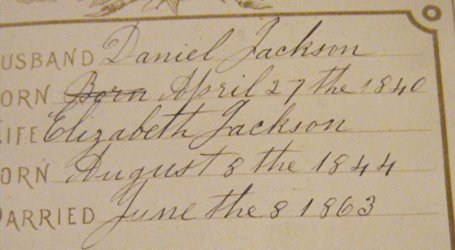 USBAND Daniel Jackson
ORN Born April 27 the 1840
IFE Elizabeth Jackson
ORN August 8 the 1844
ARRIED June the 8 1863